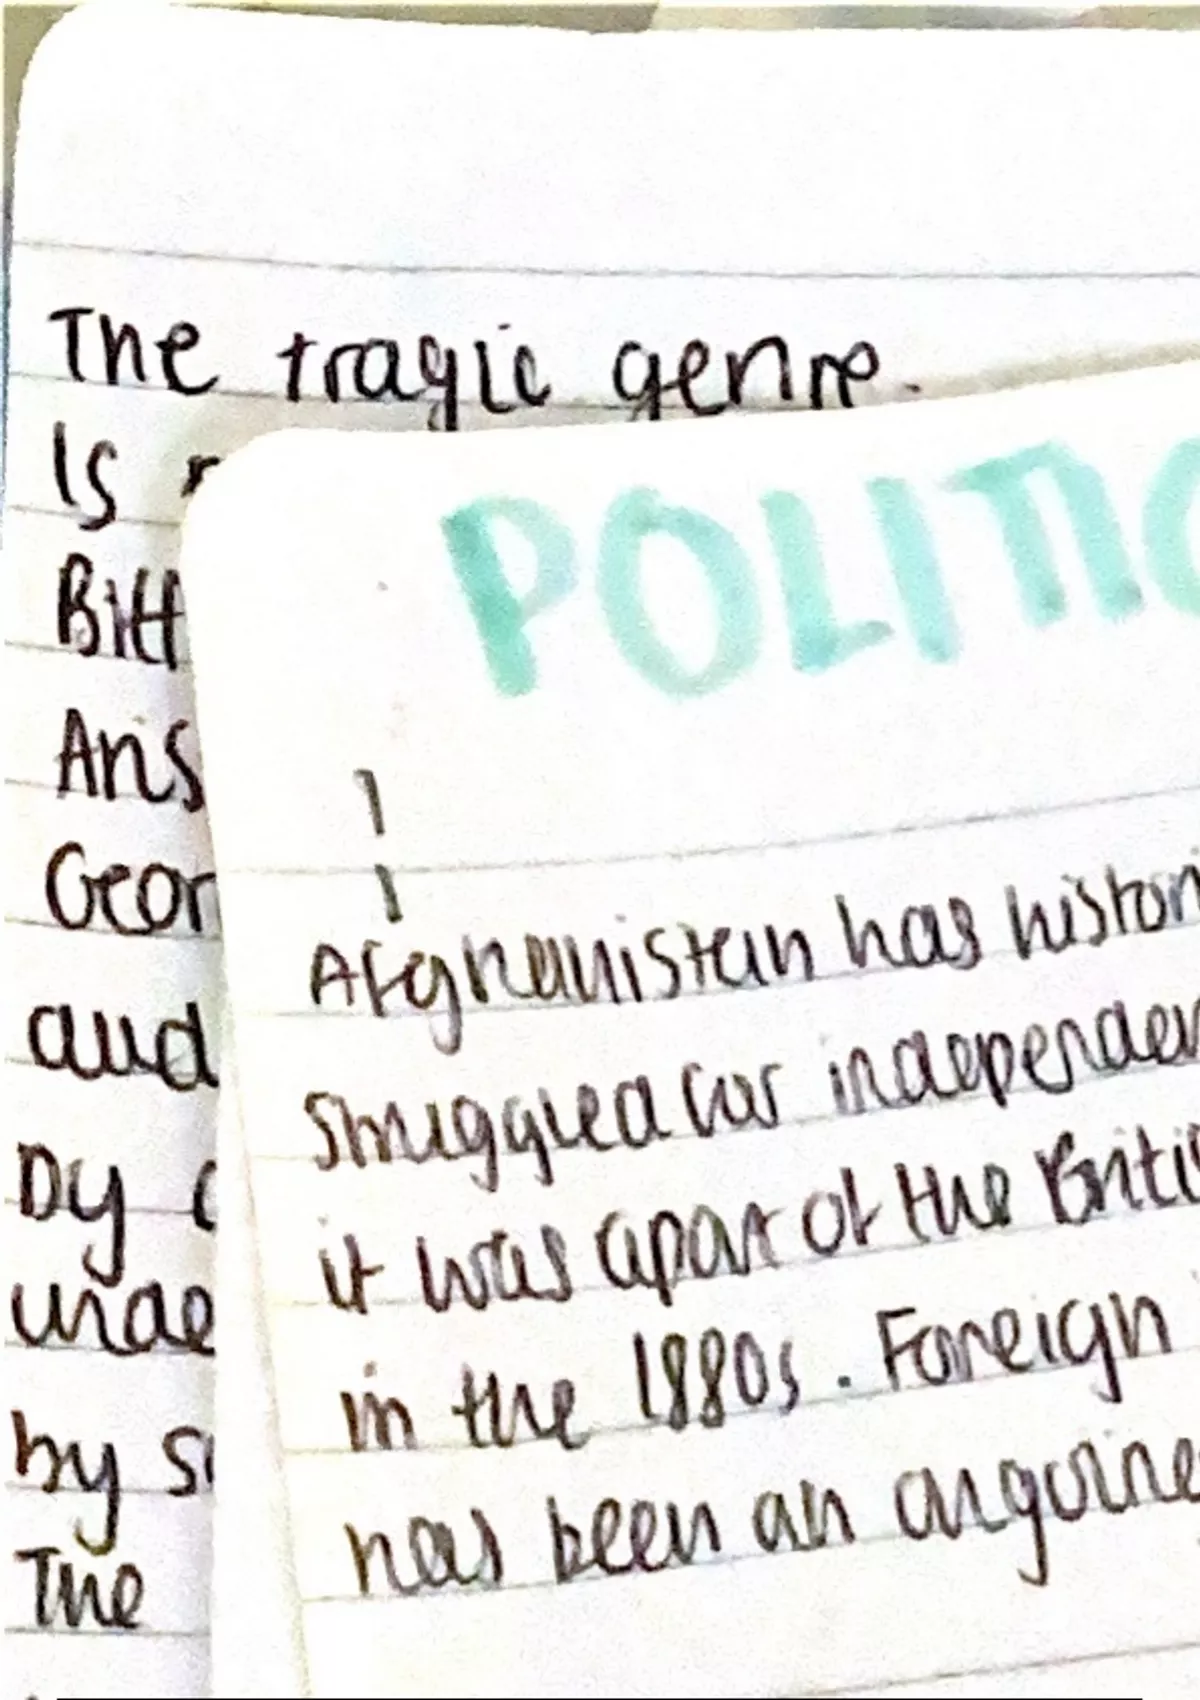 The tragic genre.
Is
Bitt
Ans
Geor
and
By
unde
by s
The
POLITIC
Afghanistan has histori
struggled for independen
it was apart of the Briti
in the 1880s. Foreign
has been an ongoing